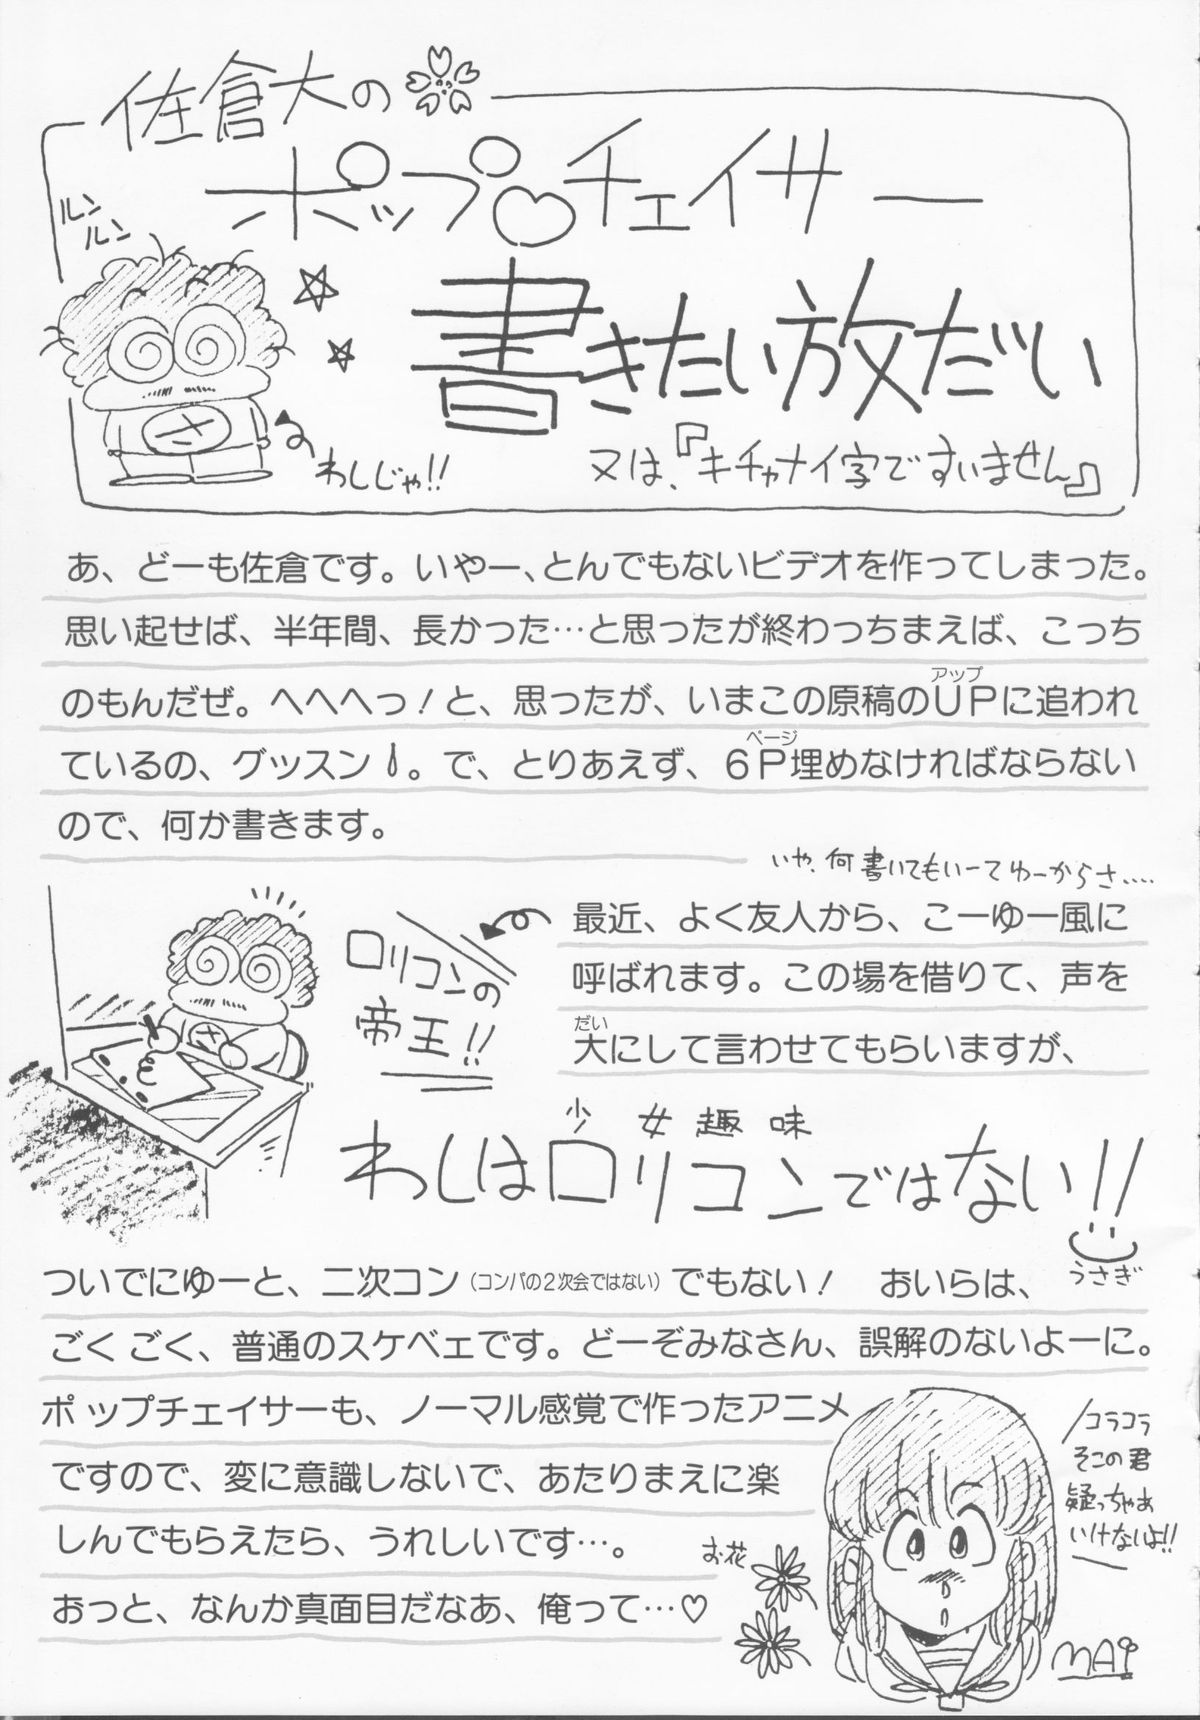 佐倉大の
ポップ♡チェイサー
書きたい放だい
又は、『キチャナイ字ですいません』
ルン
ルン
わしじゃ!!
あ、どーも佐倉です。いやー、とんでもないビデオを作ってしまった。
思い起せば、半年間、長かった…と思ったが終わっちまえば、こっち
のもんだぜ。へへへっ！と、思ったが、いまこの原稿のUP(アップ)に追われ
ているの、グッスン。で、とりあえず、6P(ページ)埋めなければならない
ので、何か書きます。
いや、何書いてもいーてゆーからさ....
最近、よく友人から、こーゆー風に
呼ばれます。この場を借りて、声を
大(だい)にして言わせてもらいますが、
ロリコンの
帝王!!
少女趣味
わしはロリコンではない!!
うさぎ
ついでにゆーと、二次コン（コンパの2次会ではない）でもない！　おいらは、
ごくごく、普通のスケベェです。どーぞみなさん、誤解のないよーに。
ポップチェイサーも、ノーマル感覚で作ったアニメ
ですので、変に意識しないで、あたりまえに楽
しんでもらえたら、うれしいです…。
おっと、なんか真面目だなあ、俺って…♡
お花
コラコラ
そこの君
疑っちゃぁ
いけないよ!!
MAI